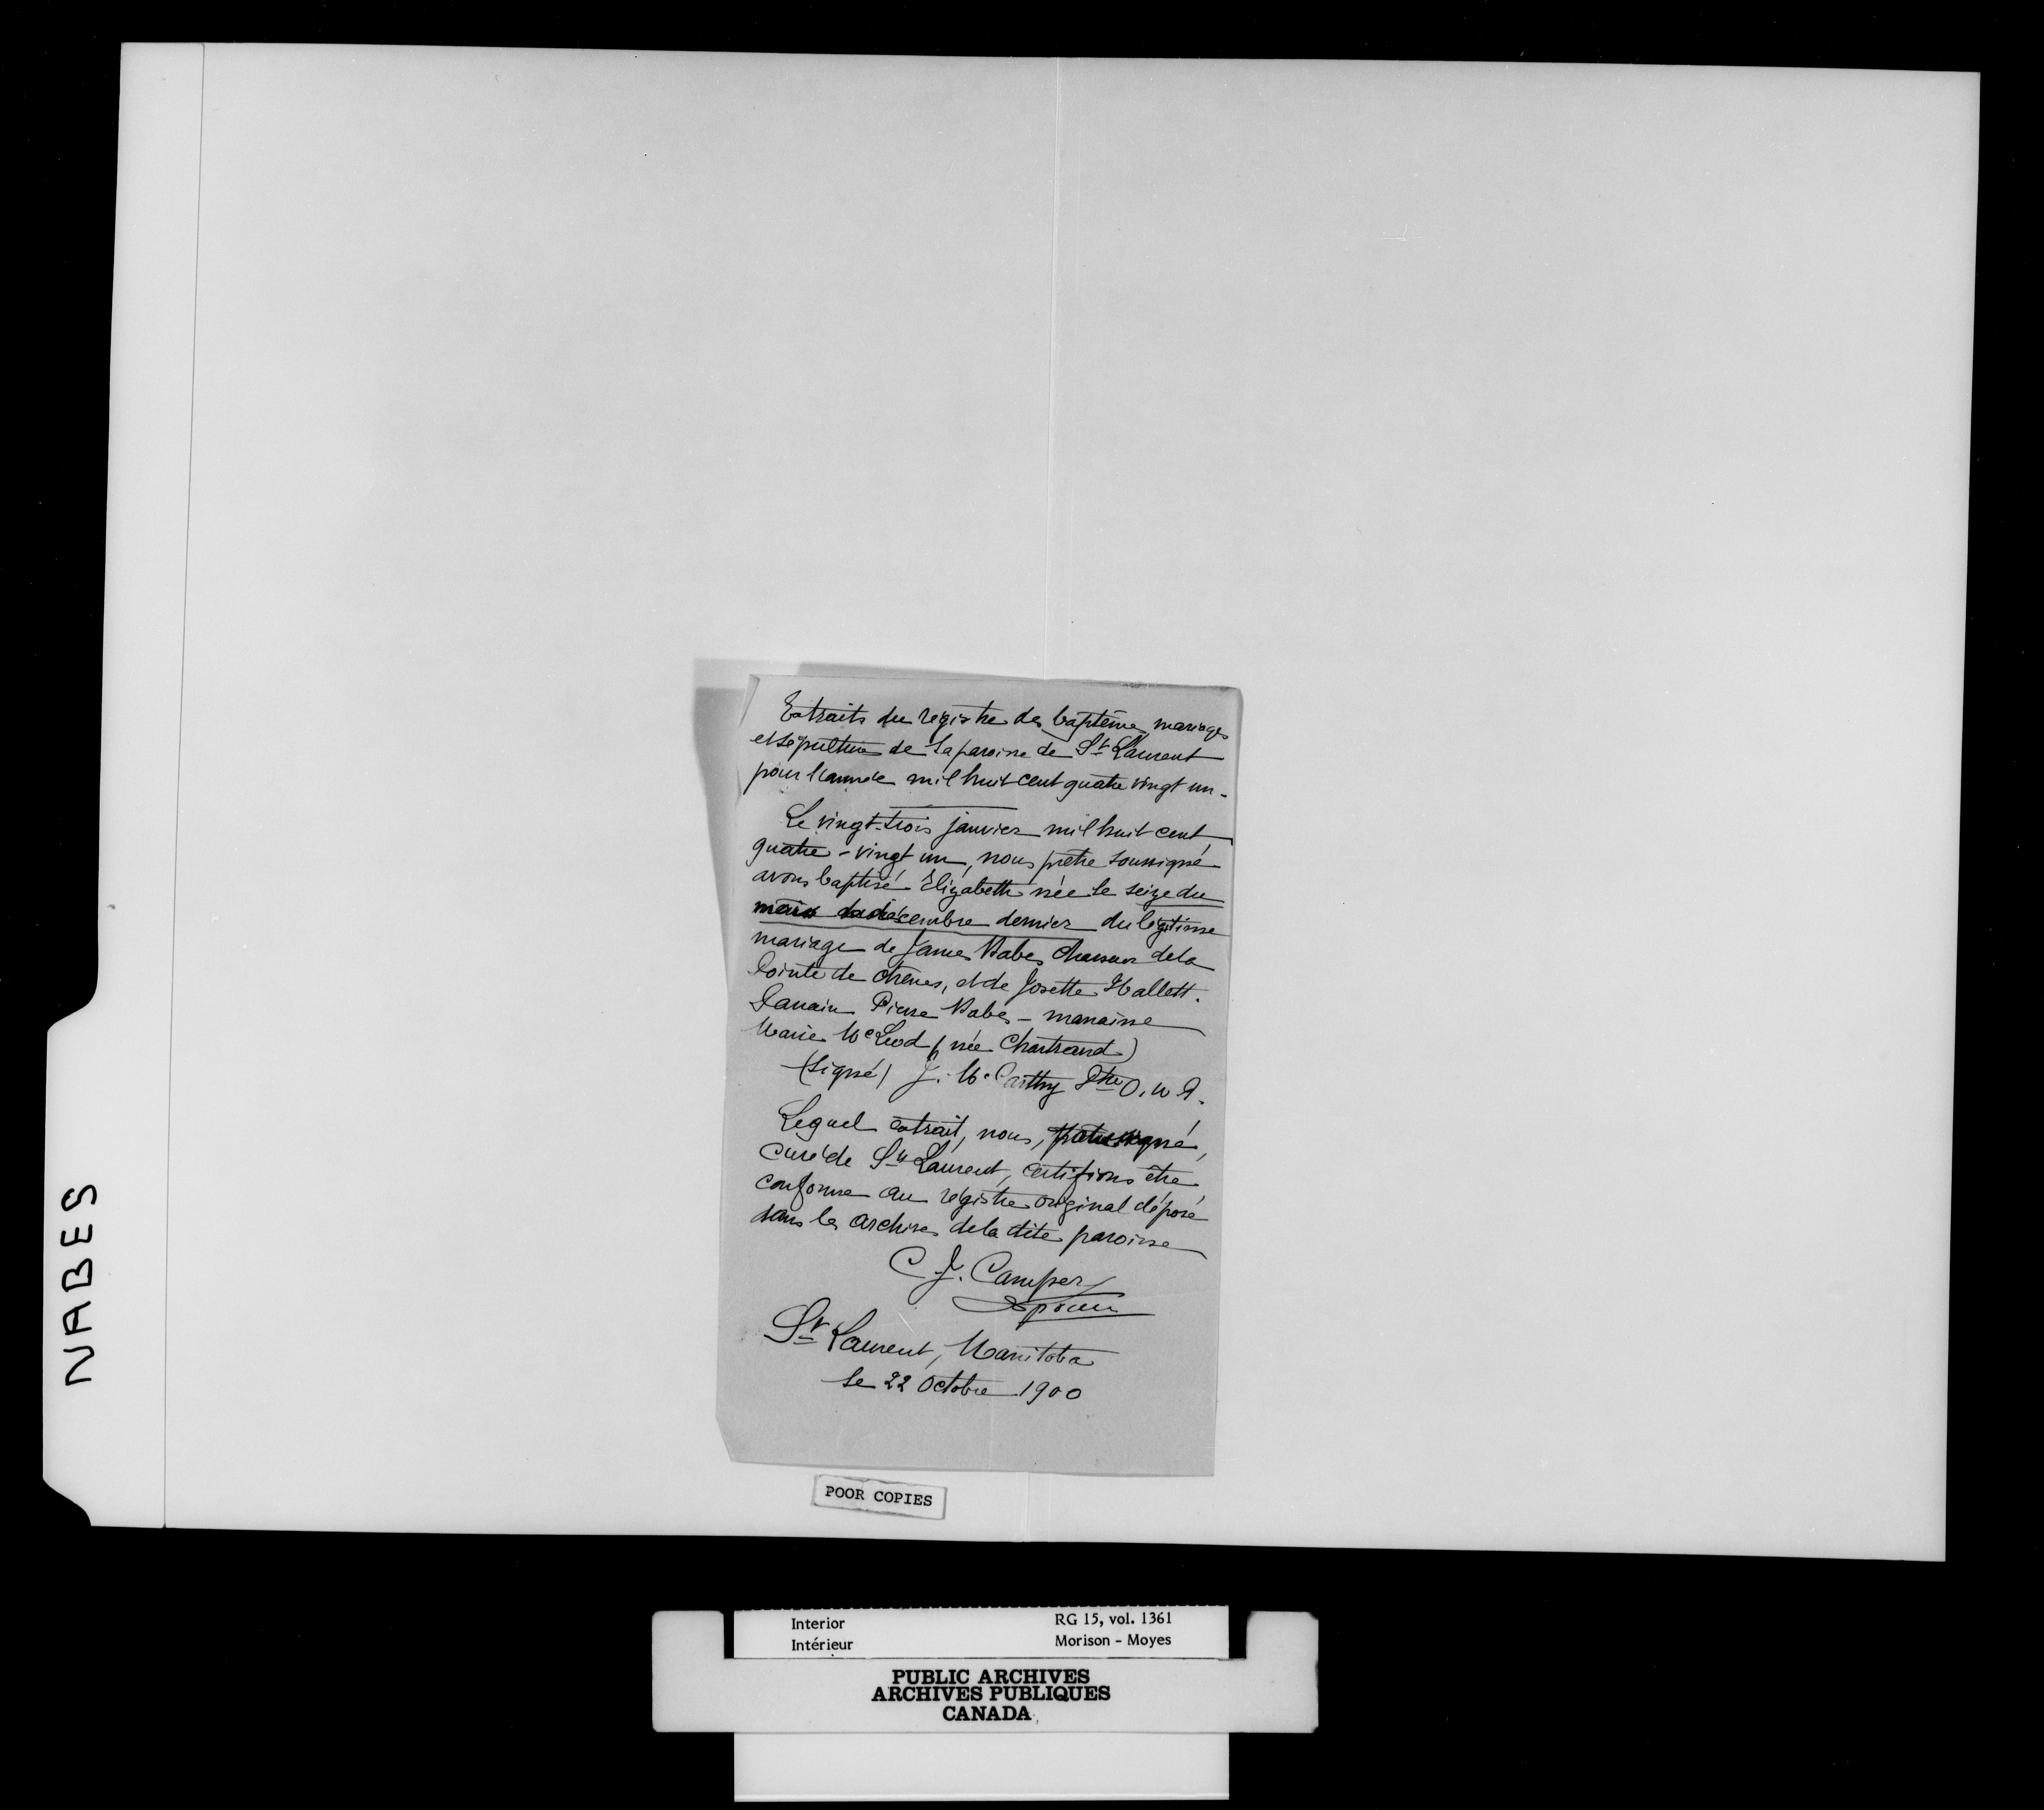 Extraits du registre des baptême, mariages
et sépulture de la paroisse de St Laurent
pour l'année mil huit cent quatre vingt un -
Le vingt-trois janvier mil huit cent
quatre-vingt un, nous prêtre soussigné
avons baptisé Elizabeth née le seize du
mois de décembre dernier du légitime
mariage de James Nabes chasseur de la
Pointe de Chênes, et de Josette Hallett.
Parrain Pierre Nabès - marraine
Marie McLeod (née Chartrand)
(Signé) J. McCarthy Ptre O.M.I.
Lequel extrait, nous,
curé de St Laurent, certifions être
conforme au régistre original déposé
dans les archives de la dite paroisse
C J. Camper
St Laurent, Manitoba
le 22 Octobre 1900
NABES
POOR COPIES
Interior RG 15, vol. 1361
Intérieur Morison - Moyes
PUBLIC ARCHIVES
ARCHIVES PUBLIQUES
CANADA